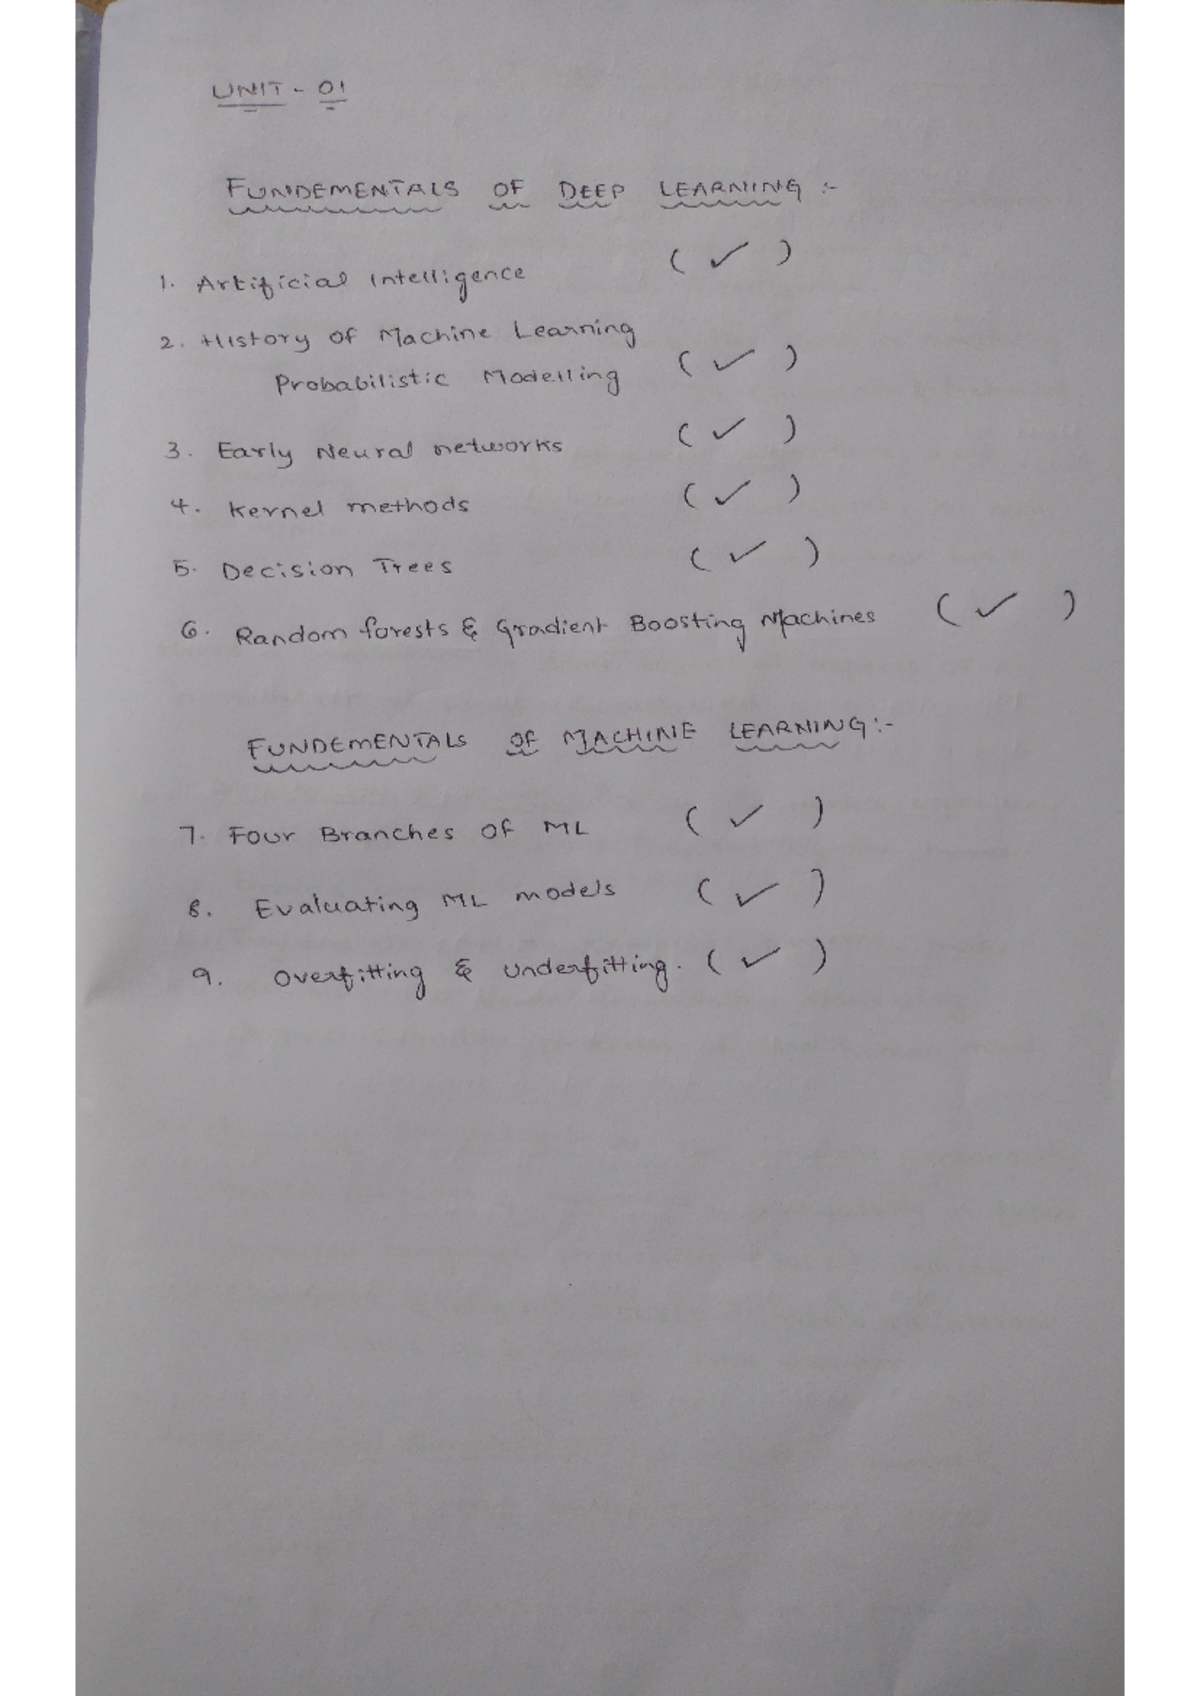 UNIT - 01
FUNDEMENTALS OF DEEP LEARNING :-
1. Artificial Intelligence ( ✓ )
2. History of Machine Learning
Probabilistic Modelling ( ✓ )
3. Early Neural networks ( ✓ )
4. Kernel methods ( ✓ )
5. Decision Trees ( ✓ )
6. Random forests & Gradient Boosting Machines ( ✓ )
FUNDEMENTALS OF MACHINE LEARNING :-
7. Four Branches of ML ( ✓ )
8. Evaluating ML models ( ✓ )
9. Overfitting & Underfitting. ( ✓ )